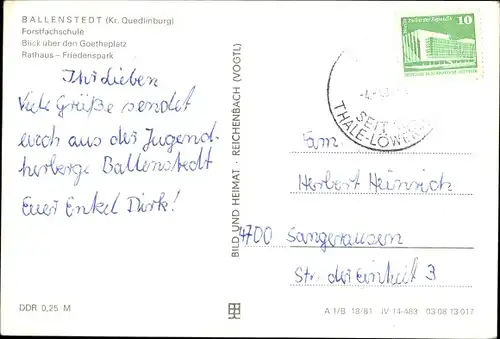 BALLENSTEDT (Kr. Quedlinburg)
Forstfachschule
Blick über den Goetheplatz
Rathaus – Friedenspark
Ihr Lieben
Viele Grüße sendet
euch aus der Jugend-
herberge Ballenstedt
Euer Enkel Dirk!
DDR 0,25 M
BILD UND HEIMAT · REICHENBACH (VOGTL)
10
SEIT
THALE-LÖWEN
Fam.
Herbert Heinrich
4700 Sangerhausen
Str. der Einheit 3
A 1/B 18/81 IV-14-483 03 08 13 017